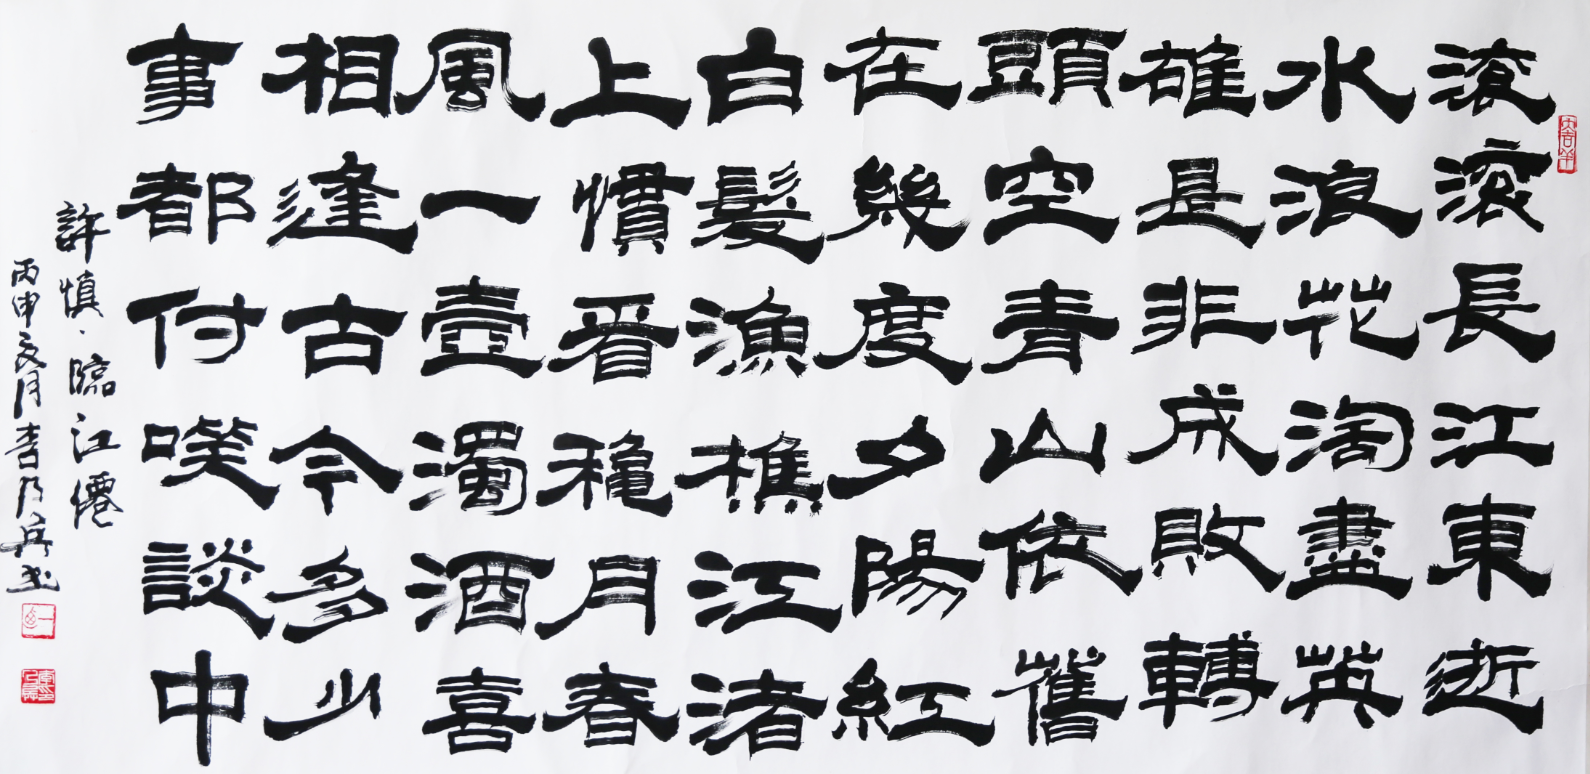 滚滚長江東逝
水浪花淘盡英
雄是非成敗轉
頭空青山依舊
在幾度夕陽紅
白髮漁樵江渚
上慣看穐月春
風一壺濁酒喜
相逢古今多少
事都付笑談中
許慎·臨江僊
丙申夏月李乃兵书